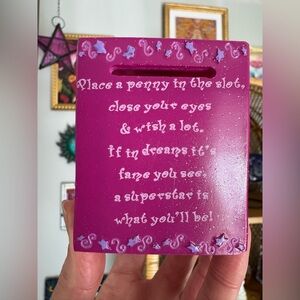 Place a penny in the slot,
close your eyes
& wish a lot.
If in dreams it's
fame you see,
a superstar is
what you'll be!